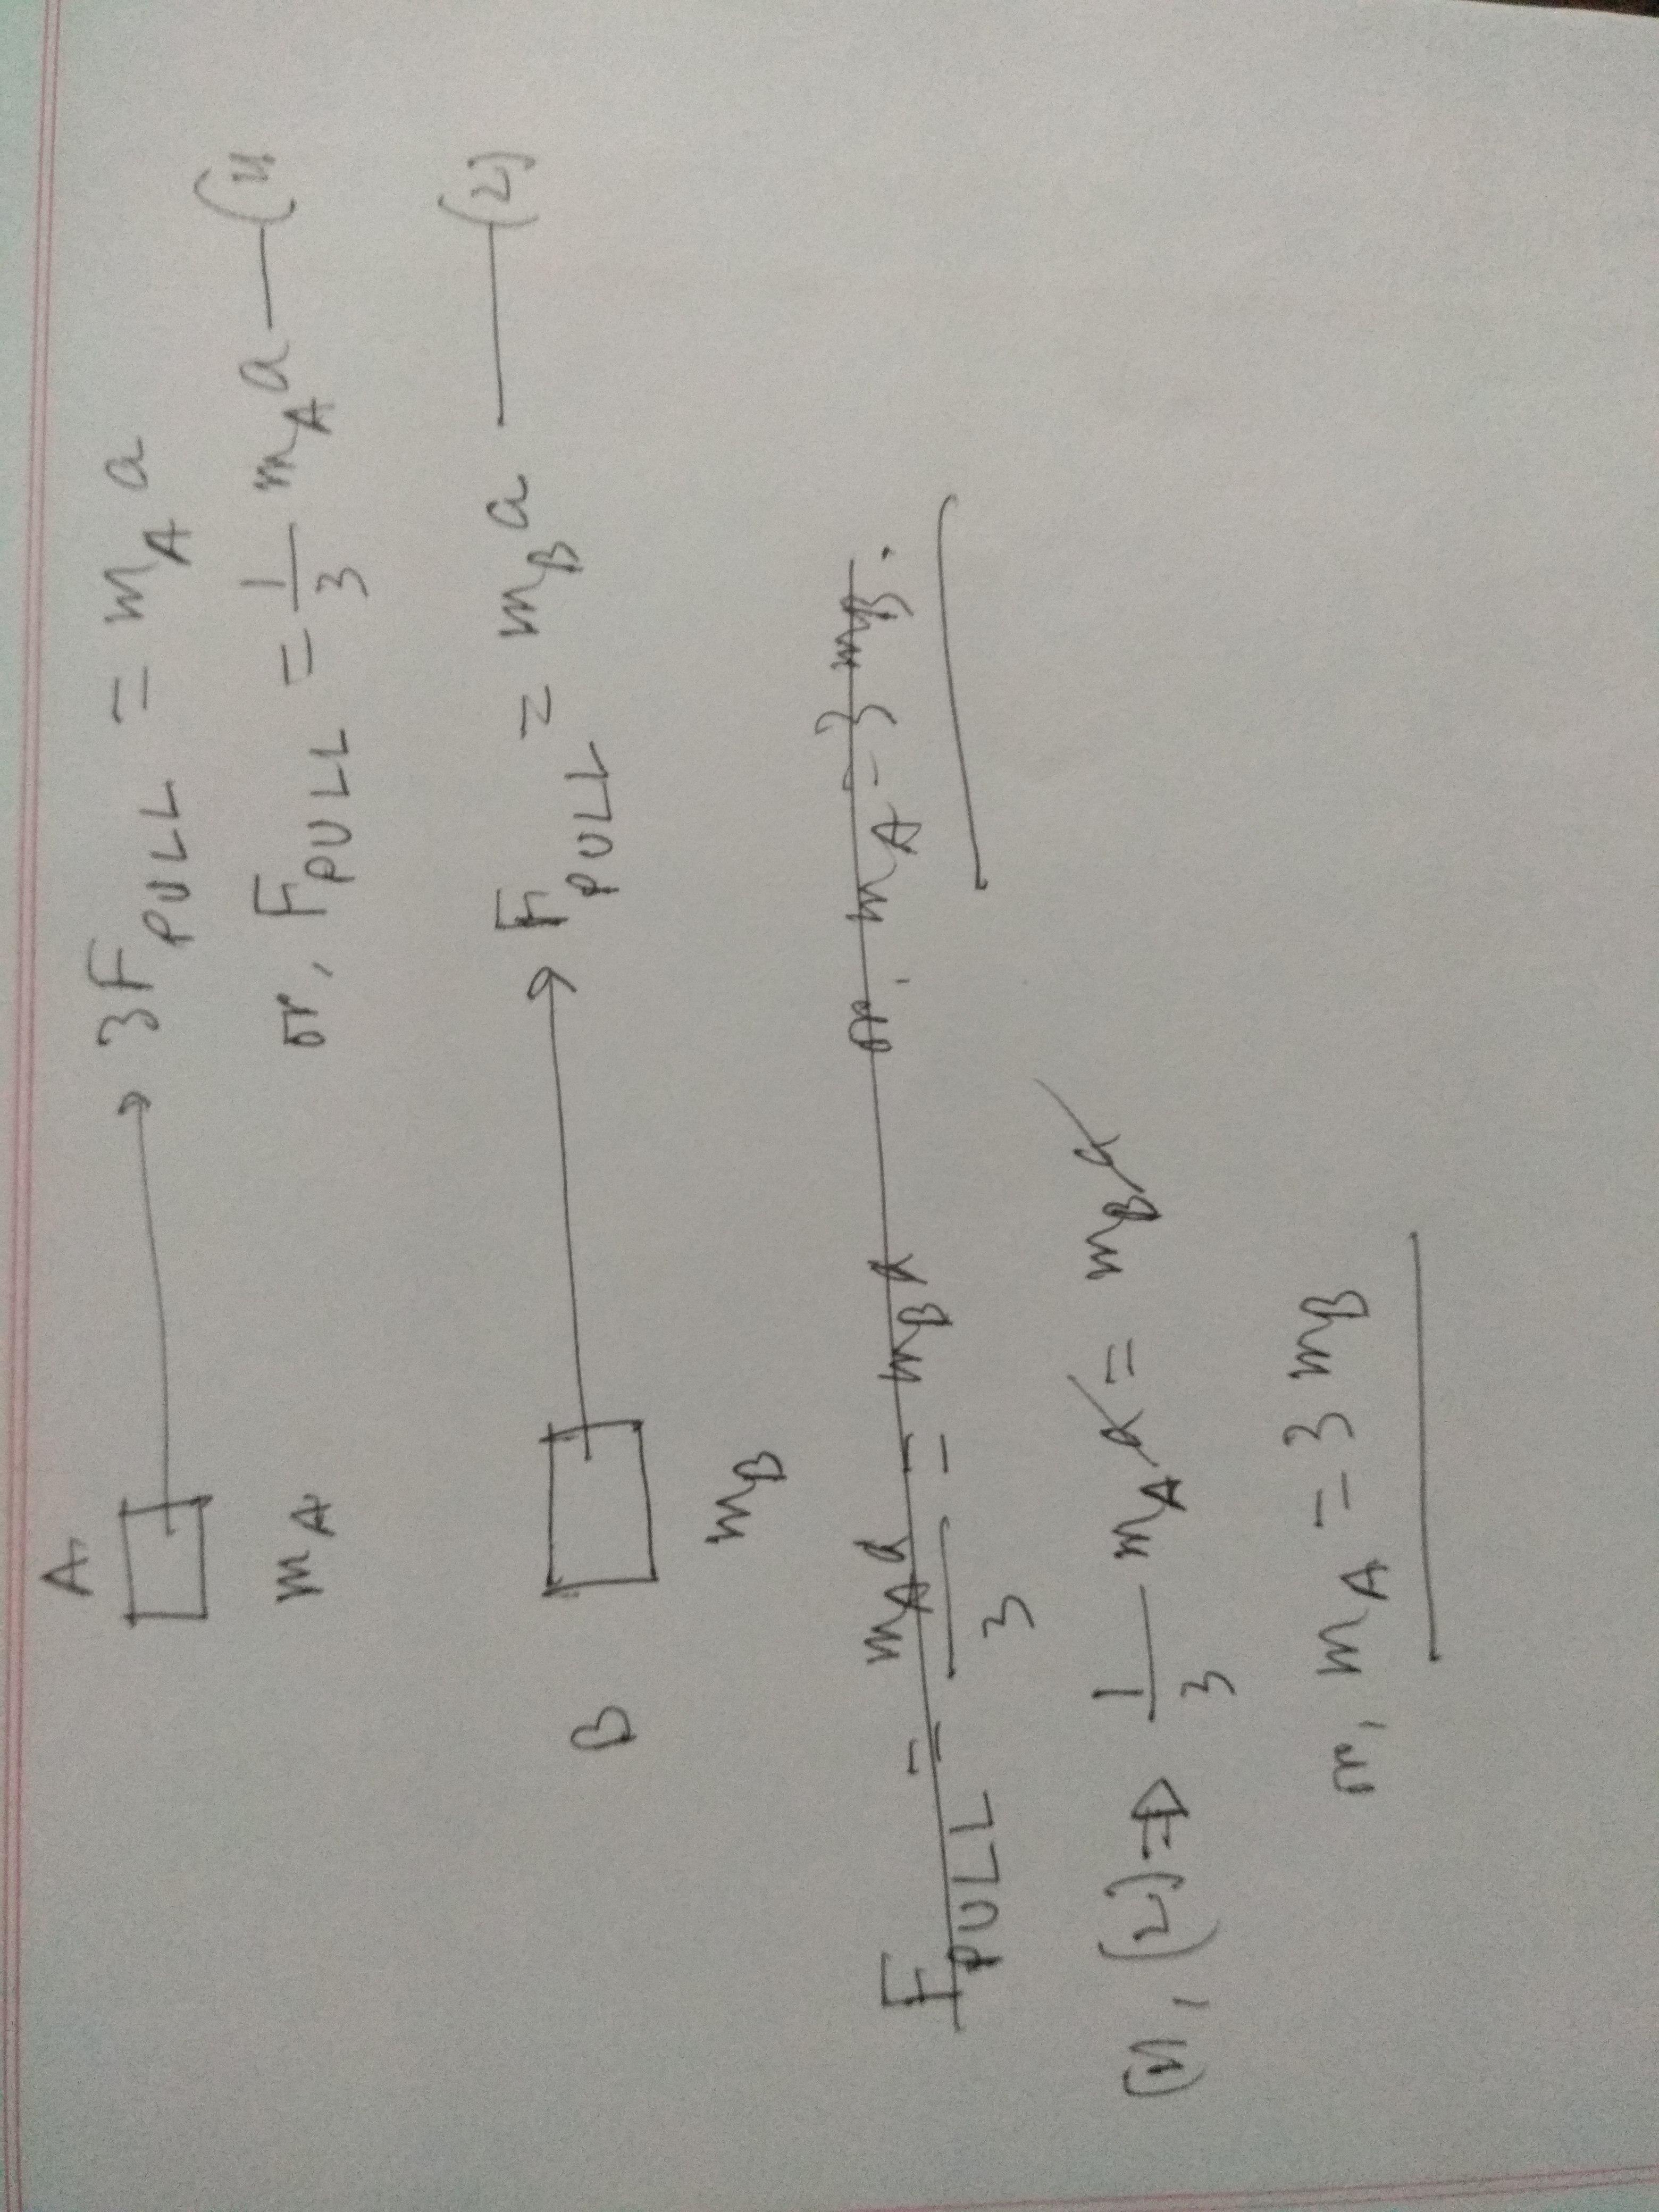 A
3F_PULL = m_A a
m_A
or, F_PULL = 1/3 m_A a — (1)
B
F_PULL = m_B a — (2)
m_B
F_PULL = m_A a / 3 = m_B a or, m_A = 3 m_B.
(1), (2) → 1/3 m_A a = m_B a
or, m_A = 3 m_B